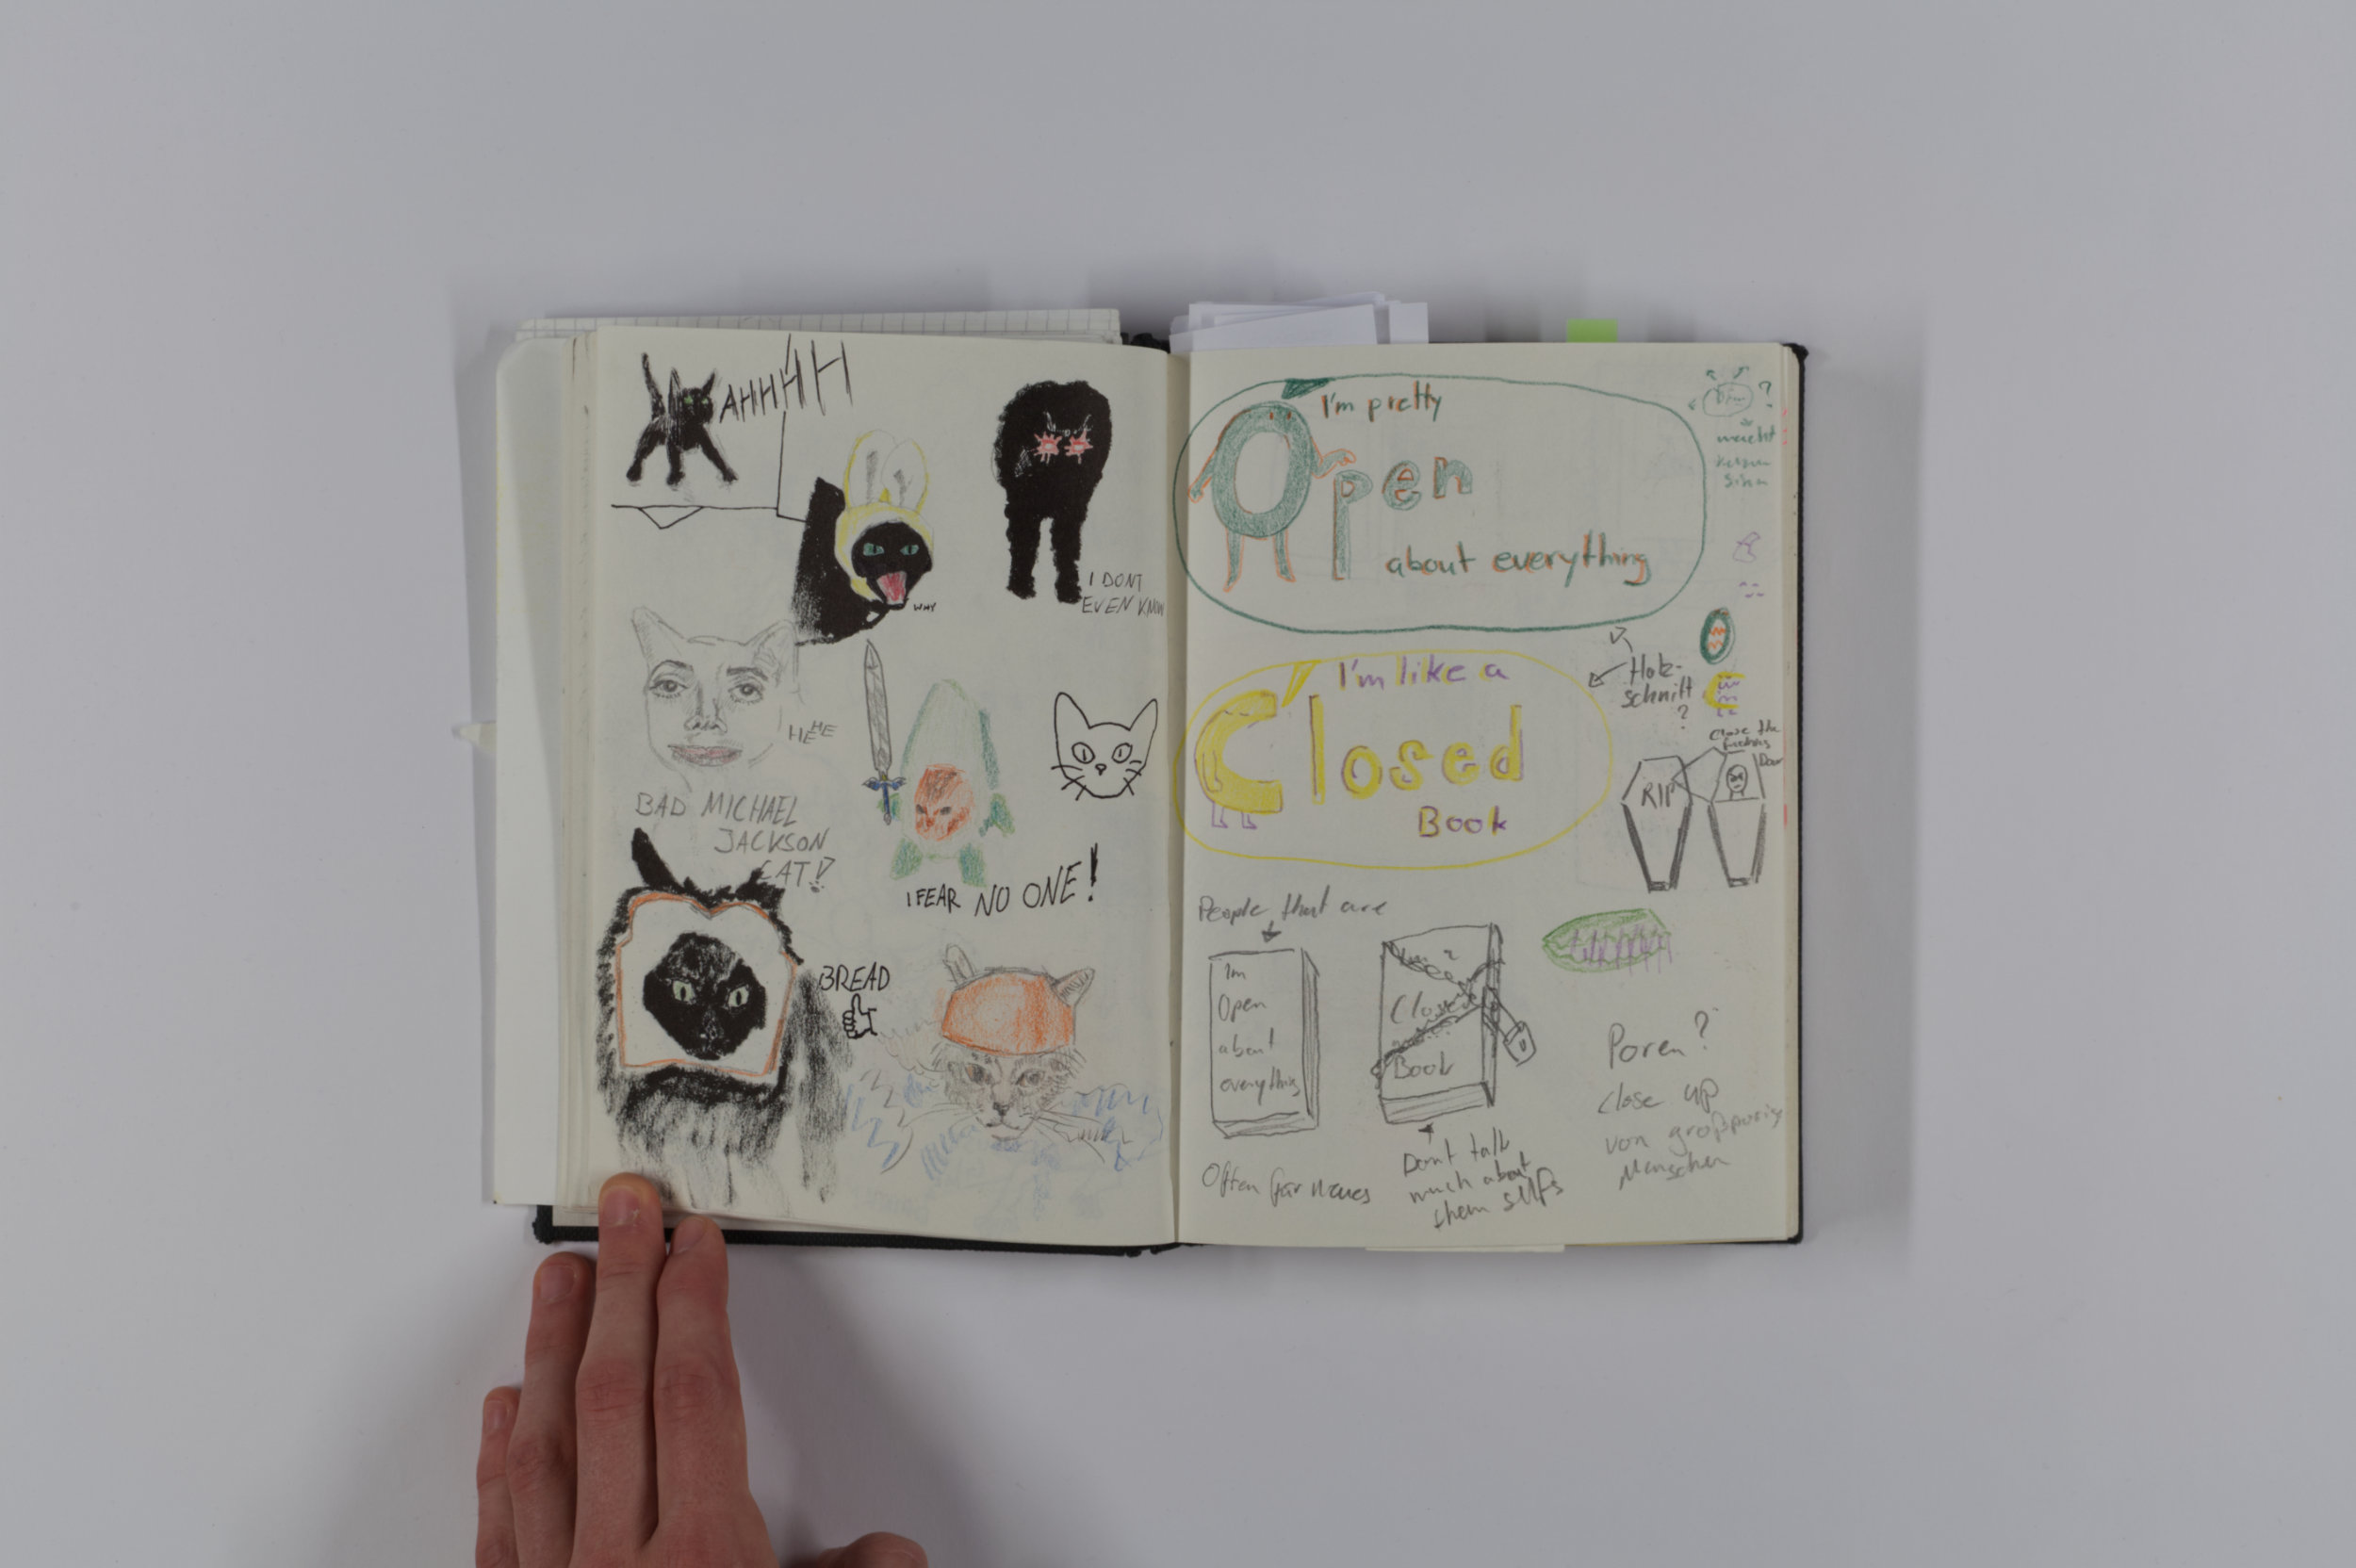 AHHHHH
WHY
I DONT
EVEN KNOW
HEHE
BAD MICHAEL
JACKSON
CAT!?
I FEAR NO ONE!
BREAD
I'm pretty
Open
about everything
?
macht
I'm like a
Closed
Book
Holz-
schnitt
?
Close the
fucking
Door
RIP
People that are
Im
Open
about
everything
Closed
Book
Often
Dont talk
much about
them selfs
Poren?
close up
von großporig
Menschen